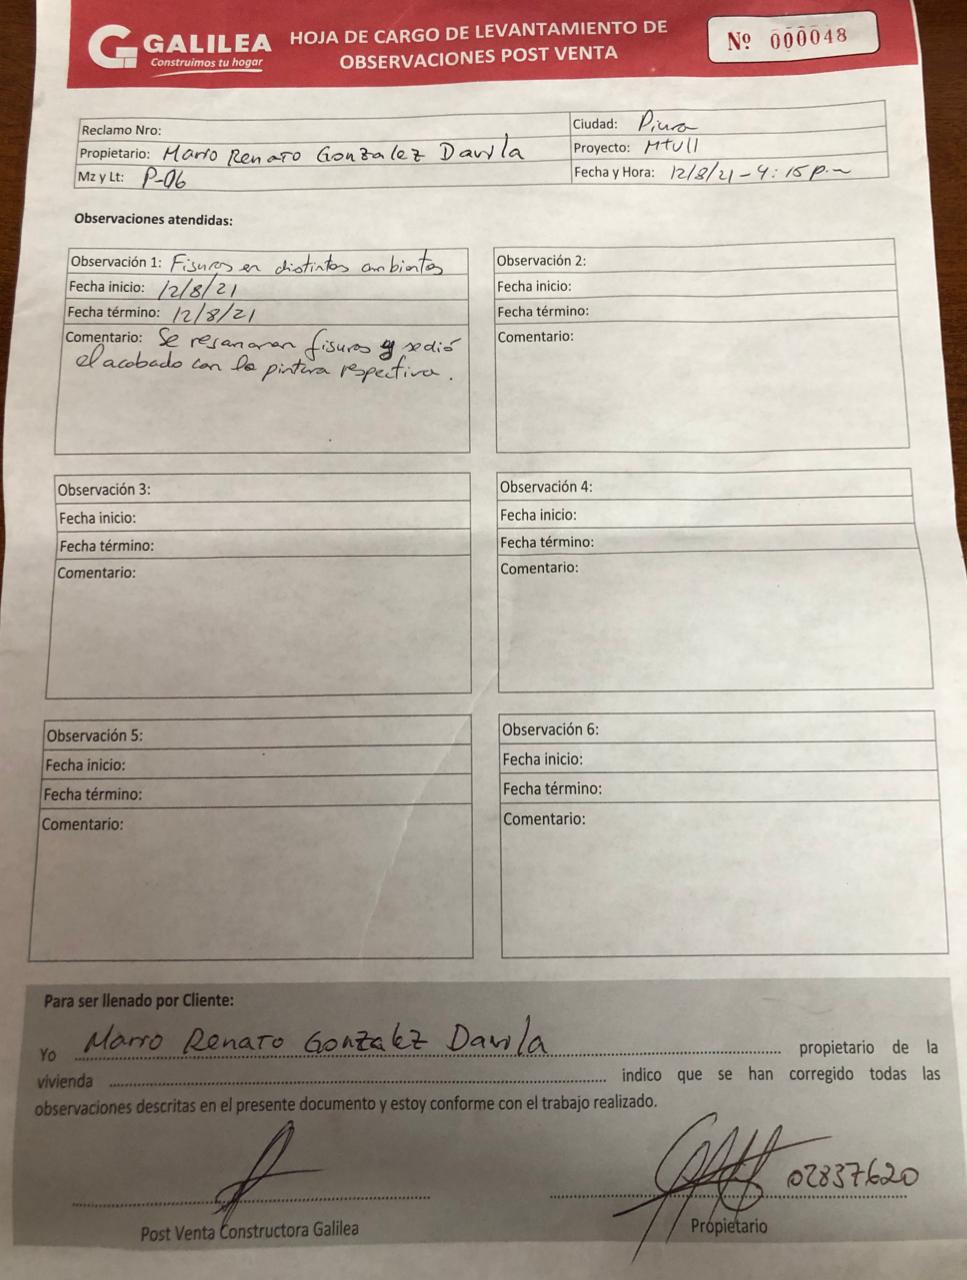 GALILEA
Construimos tu hogar
HOJA DE CARGO DE LEVANTAMIENTO DE
OBSERVACIONES POST VENTA
Nº 000048
Reclamo Nro:
Propietario: Mario Renato Gonzalez Davila
Mz y Lt: P-06
Ciudad: Piura
Proyecto: MTVII
Fecha y Hora: 12/8/21 - 4:15 p.m
Observaciones atendidas:
Observación 1: Fisuras en distintos ambientes
Fecha inicio: 12/8/21
Fecha término: 12/8/21
Comentario: Se resanaran fisuras y se dió
el acabado con la pintura respectiva.
Observación 2:
Fecha inicio:
Fecha término:
Comentario:
Observación 3:
Fecha inicio:
Fecha término:
Comentario:
Observación 4:
Fecha inicio:
Fecha término:
Comentario:
Observación 5:
Fecha inicio:
Fecha término:
Comentario:
Observación 6:
Fecha inicio:
Fecha término:
Comentario:
Para ser llenado por Cliente:
Yo Mario Renato Gonzalez Davila propietario de la
vivienda indico que se han corregido todas las
observaciones descritas en el presente documento y estoy conforme con el trabajo realizado.
02837620
Post Venta Constructora Galilea
Propietario